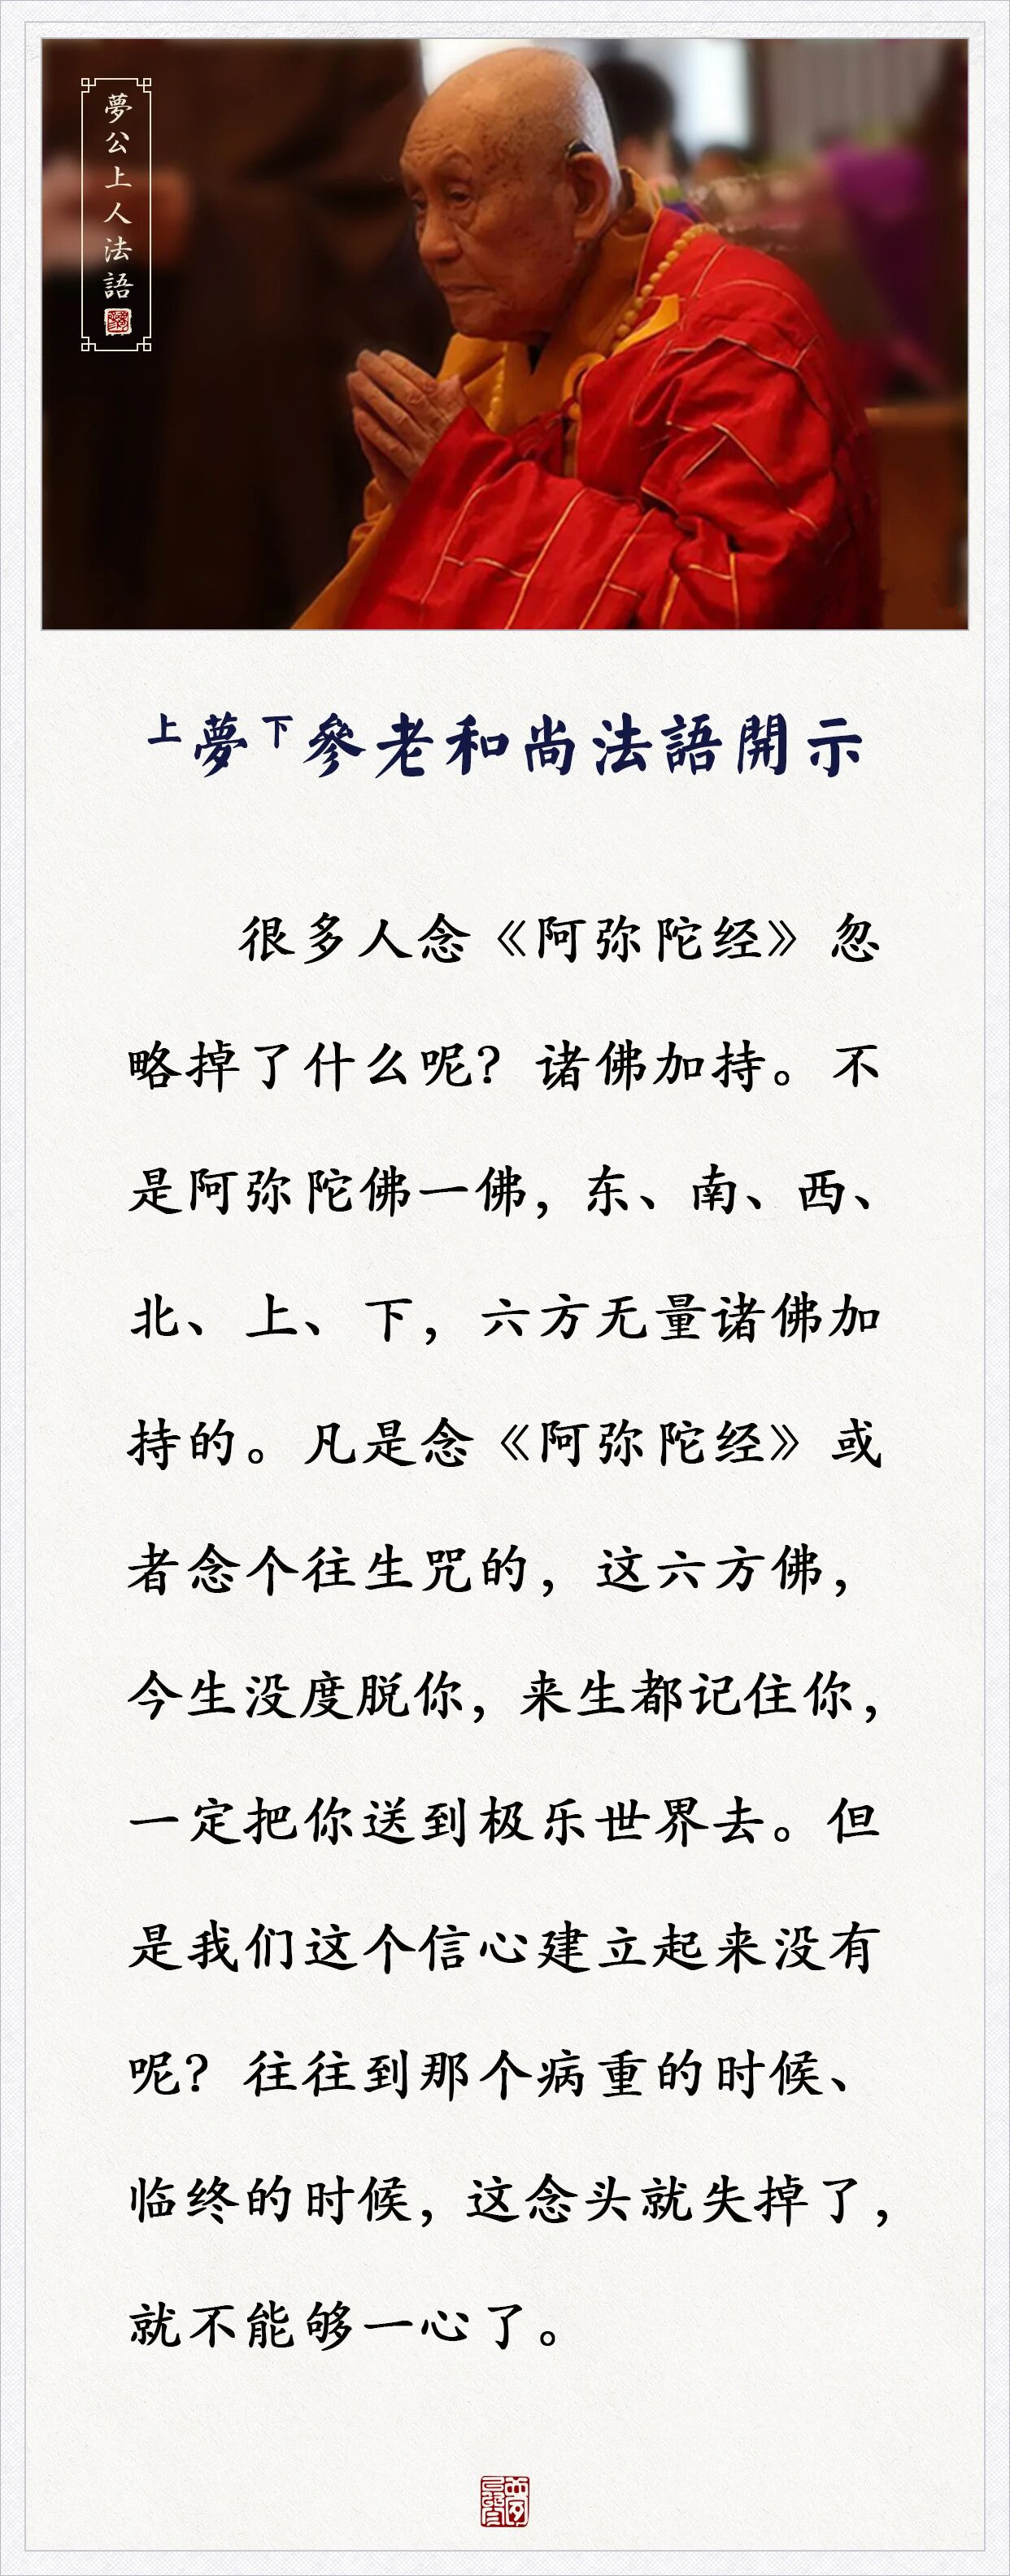 夢公上人法語
上夢下參老和尚法語開示
很多人念《阿弥陀经》忽
略掉了什么呢？诸佛加持。不
是阿弥陀佛一佛，东、南、西、
北、上、下，六方无量诸佛加
持的。凡是念《阿弥陀经》或
者念个往生咒的，这六方佛，
今生没度脱你，来生都记住你，
一定把你送到极乐世界去。但
是我们这个信心建立起来没有
呢？往往到那个病重的时候、
临终的时候，这念头就失掉了，
就不能够一心了。